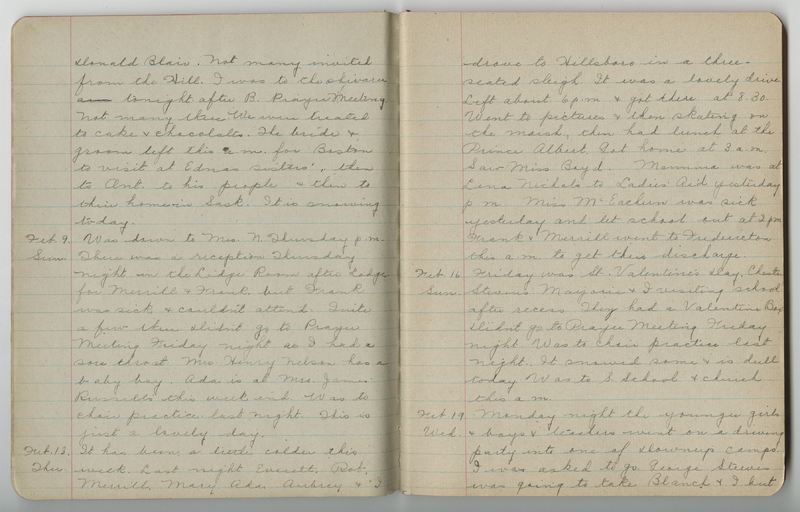 Donald Blair. Not many invited
from the Hill. I was to the shivaree
tonight after B. Prayer Meeting
Not many there We were treated
to cake & chocolates. The bride &
groom left this a.m. for Boston
to visit at Ednas sisters', then
to Ont. to his people & then to
their home in Sask. It is snowing
today.
Feb. 9. Was down to Mrs. N. Thursday p.m.
Sun. There was a reception Thursday
night in the Lodge Room after Lodge
for Merrill & Frank, but Frank
was sick & couldn't attend. Quite
a few there. I didn't go to Prayer
Meeting Friday night as I had a
sore throat. Mrs. Henry Nelson has a
baby boy. Ada is at Mrs. James
this week end. Was to
choir practice last night. This is
just a lovely day.
Feb. 13. It has been a little colder this
Thu. week. Last night Everett, Rob,
Merrill, Mary, Ada, Aubrey & I
drove to Hillsboro in a three-
seated sleigh. It was a lovely drive
Left about 6 p.m & got there at 8.30
Went to pictures & then skating on
the marsh, then had lunch at the
Prince Albert. Got home at 3 a.m.
Saw Miss Boyd. Mamma was at
Lena Nichols to Ladies Aid yesterday
p m. Miss McEachern was sick
yesterday and let school out at 2 p.m.
Frank & Merrill went to Fredericton
this a.m. to get their discharge.
Feb. 16 Friday was St. Valentine's Day,
Sun. Steeves Marjorie & I visiting school
after recess. They had a Valentine Box
I didn't go to Prayer Meeting Friday
night. Was to choir practice last
night. It snowed some & is dull
today. Was to S. School & church
this a.m.
Feb 19 Monday night the younger girls
Wed. & boys & leaders went on a driving
party into one of camps.
I was asked to go. George Steeves
was going to take Blanch & I but